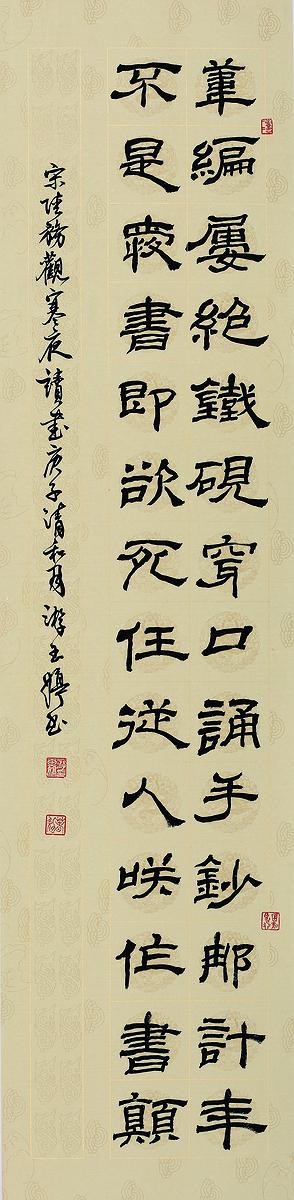 韋編屢絶鐵硯穿口誦手鈔那計年
不是愛書即欲死任從人咲作書顛
宋陸務觀寒夜讀書庚子清和月游玉書